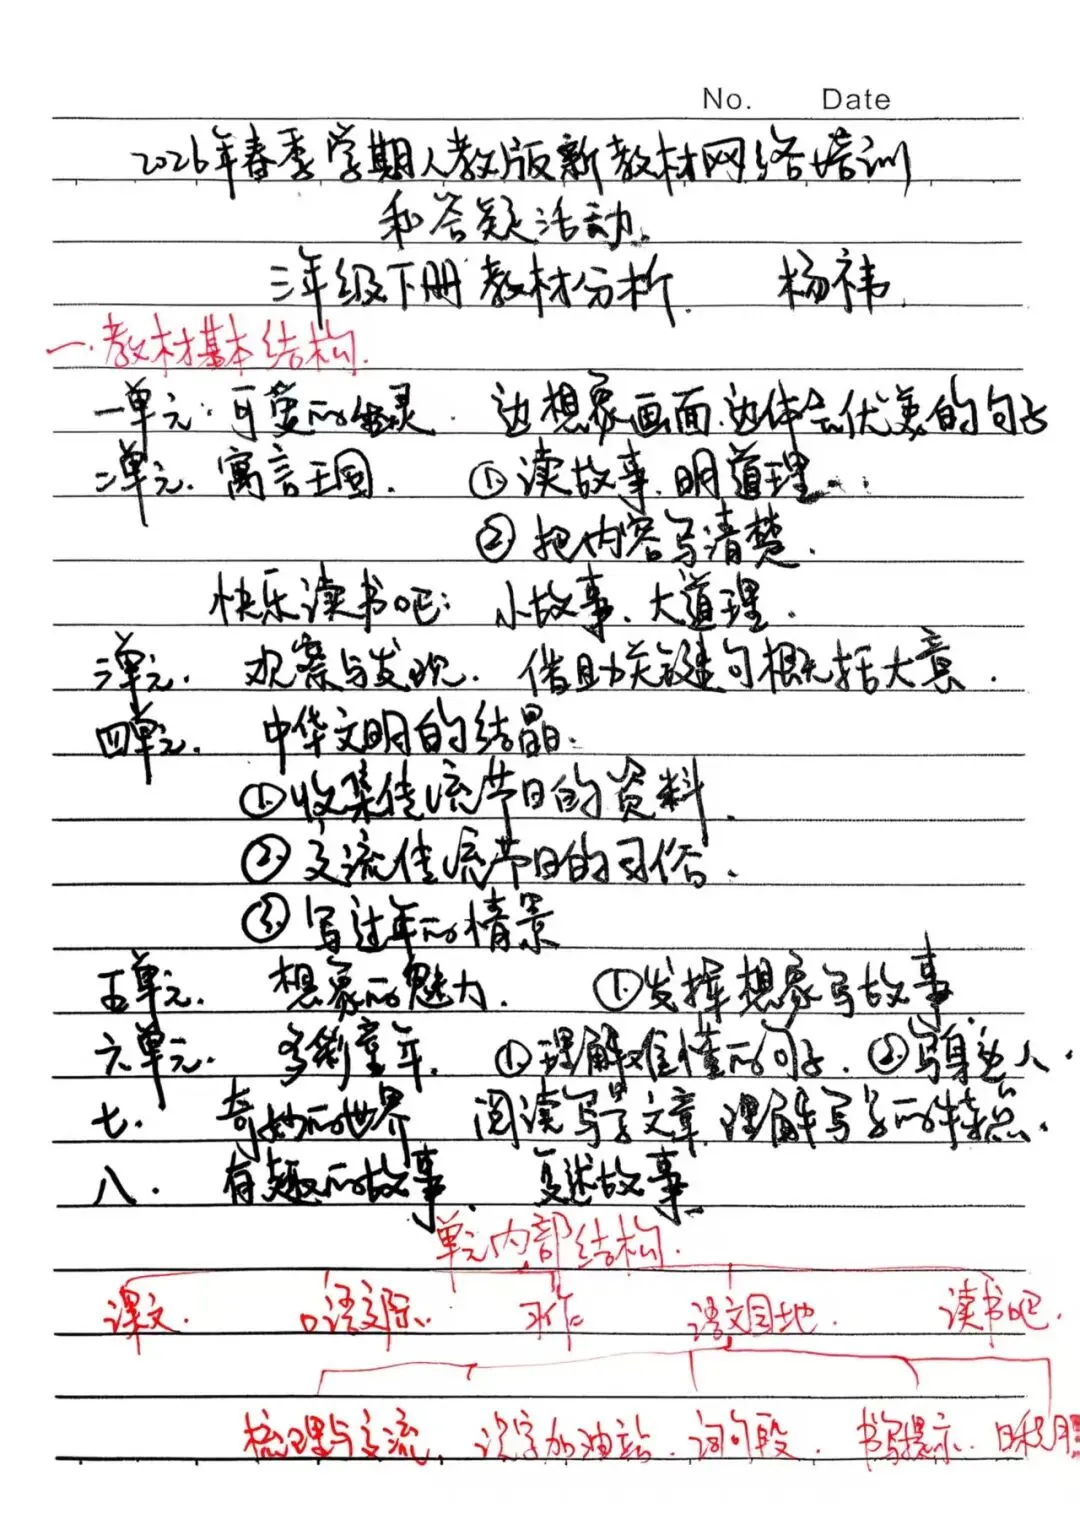 No. Date
2026年春季学期人教版新教材网络培训
和答疑活动.
三年级下册 教材分析. 杨祎.
一.教材基本结构.
一单元: 可爱的生灵. 边想象画面.边体会优美的句子
二单元. 寓言王国. ①读故事.明道理.
②把内容写清楚.
快乐读书吧: 小故事.大道理.
三单元. 观察与发现. 借助关键句概括大意.
四单元. 中华文明的结晶.
①收集传统节日的资料.
②交流传统节日的习俗.
③写过年的情景
五单元. 想象的魅力. ①发挥想象写故事
六单元. 多彩童年. ①理解难懂的句子. ②写身边人.
七. 奇妙的世界 阅读写景文章.理解写景的特点.
八. 有趣的故事. 复述故事.
单元内部结构.
课文. 口语交际. 习作 语文园地. 读书吧.
梳理与交流. 识字加油站. 词句段. 书写提示. 日积月